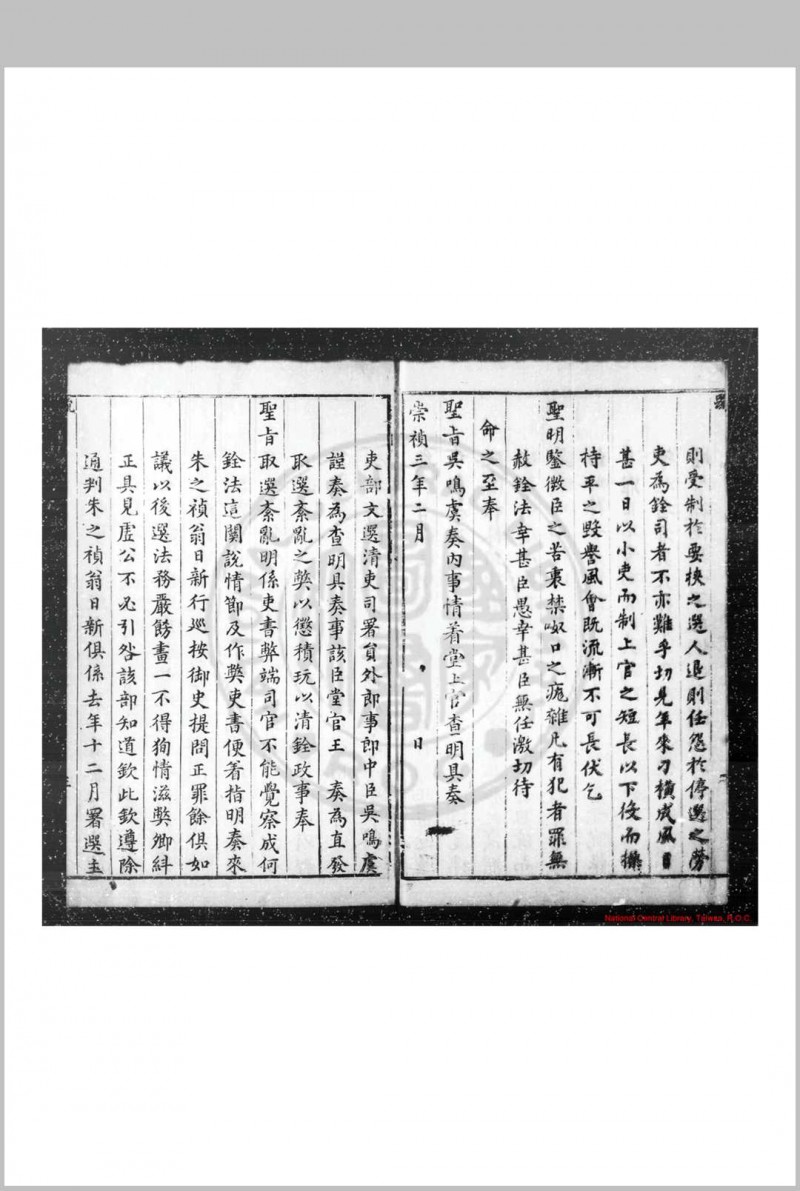 則受制於要挾之選人退則任怨於停選之勞
吏為銓司者不亦難乎切見年來刁橫成風日
甚一日以小吏而制上官之短長以下役而操
持平之毀譽風會既流漸不可長伏乞
聖明鑒微臣之苦衷禁呶口之疵雜凡有犯者罪無
赦銓法幸甚臣愚幸甚臣無任激切待
命之至奉
聖旨吳鳴虞奏內事情着堂上官查明具奏
崇禎三年二月 日
吏部文選清吏司署員外郎事郎中臣吳鳴虞
謹奏為查明具奏事該臣堂官王 奏為直發
取選紊亂之獘以懲積玩以清銓政事奉
聖旨取選紊亂明係吏書弊端司官不能覺察成何
銓法這関說情節及作獘吏書便着指明奏來
朱之禎翁日新行巡按御史提問正罪餘俱如
議以後選法務嚴飭畫一不得狥情滋獘卿糾
正具見虛公不必引咎該部知道欽此欽遵除
通判朱之禎翁日新俱係去年十二月署選主
National Central Library, Taiwan, R.O.C.